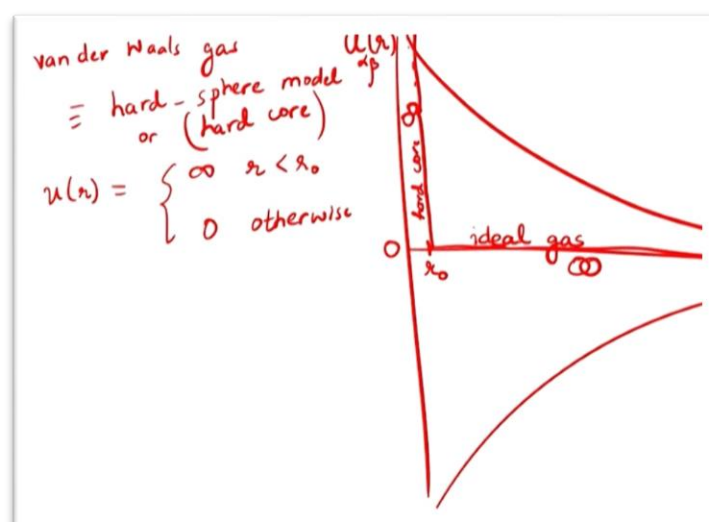 van der Waals gas
≡ hard-sphere model
or (hard core)
u(r) = { ∞ r < r₀
0 otherwise
U(r)
αβ
hard core
0
r₀
ideal gas